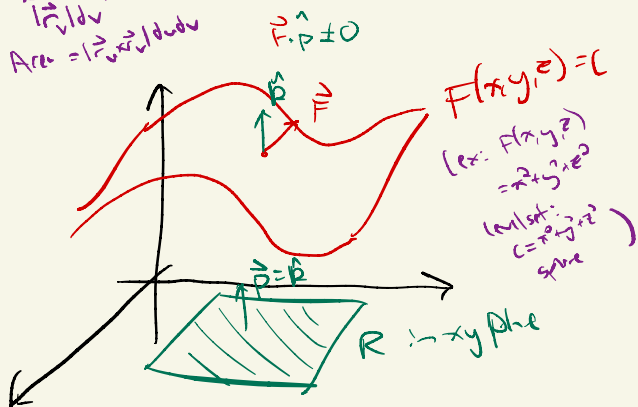 |r⃗ᵥ|dv
Area = |r⃗ᵥxr⃗ᵥ|dudv
F⃗·p̂ ≠ 0
k̂
F⃗
F(x,y,z) = C
(ex: F(x,y,z)
= x²+y²+z²
level set:
C=x²+y²+z²
sphere)
p⃗ = k̂
R in xy plane